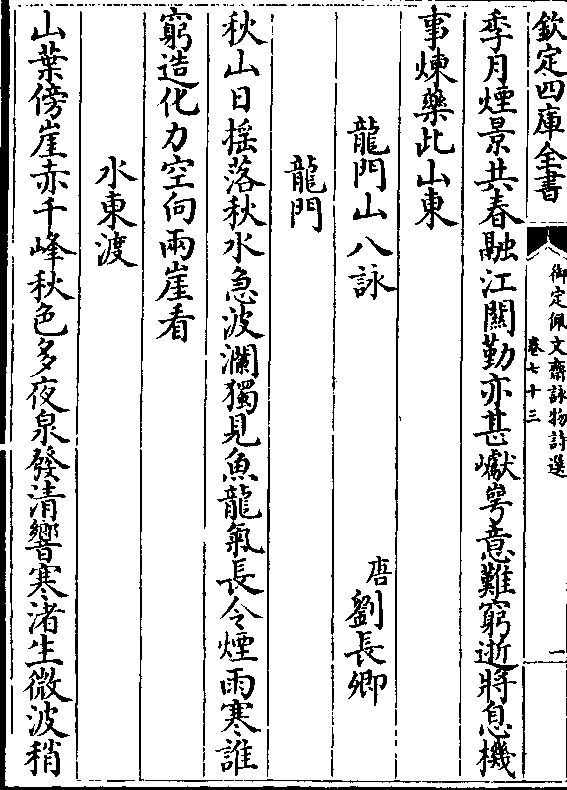 欽定四庫全書
御定佩文齋詠物詩選
卷七十三
一
季月煙景共春融江關勤亦甚巘崿意難窮逝將息機
事煉藥此山東
龍門山八詠
唐劉長卿
龍門
秋山日揺落秋水急波瀾獨見魚龍氣長令煙雨寒誰
窮造化力空向兩崖看
水東渡
山葉傍崖赤千峰秋色多夜泉發清響寒渚生微波稍